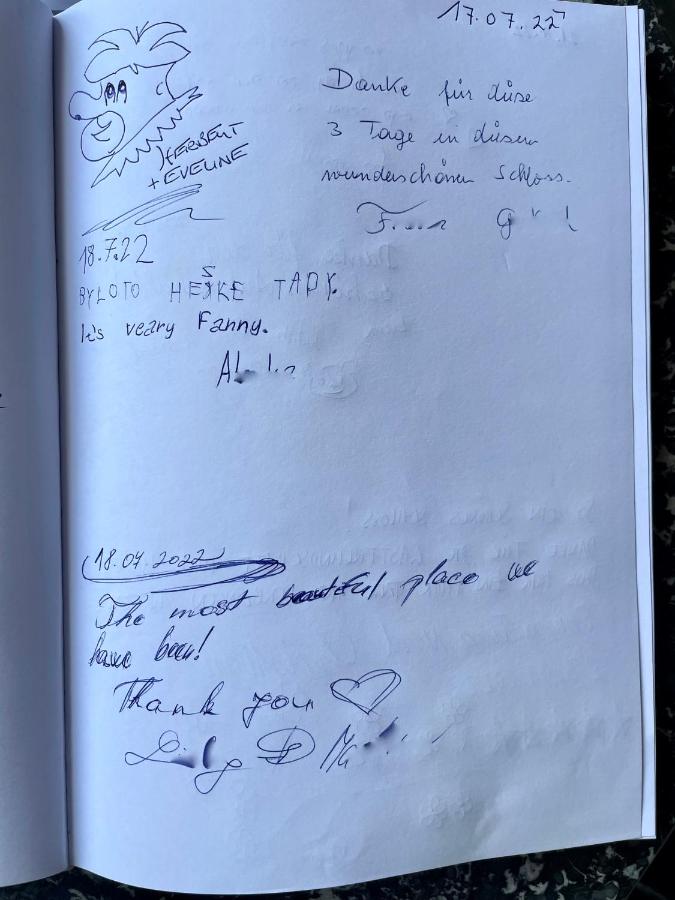 17.07.22
Danke für diese
3 Tage in diesem
wunderschönen Schloss.
HERBERT
+ EVELINE
18.7.22
BYLOTO HEŠKE TADY.
It's veary Fanny.
18.07.2022
The most beautiful place we
have been!
Thank you ♡